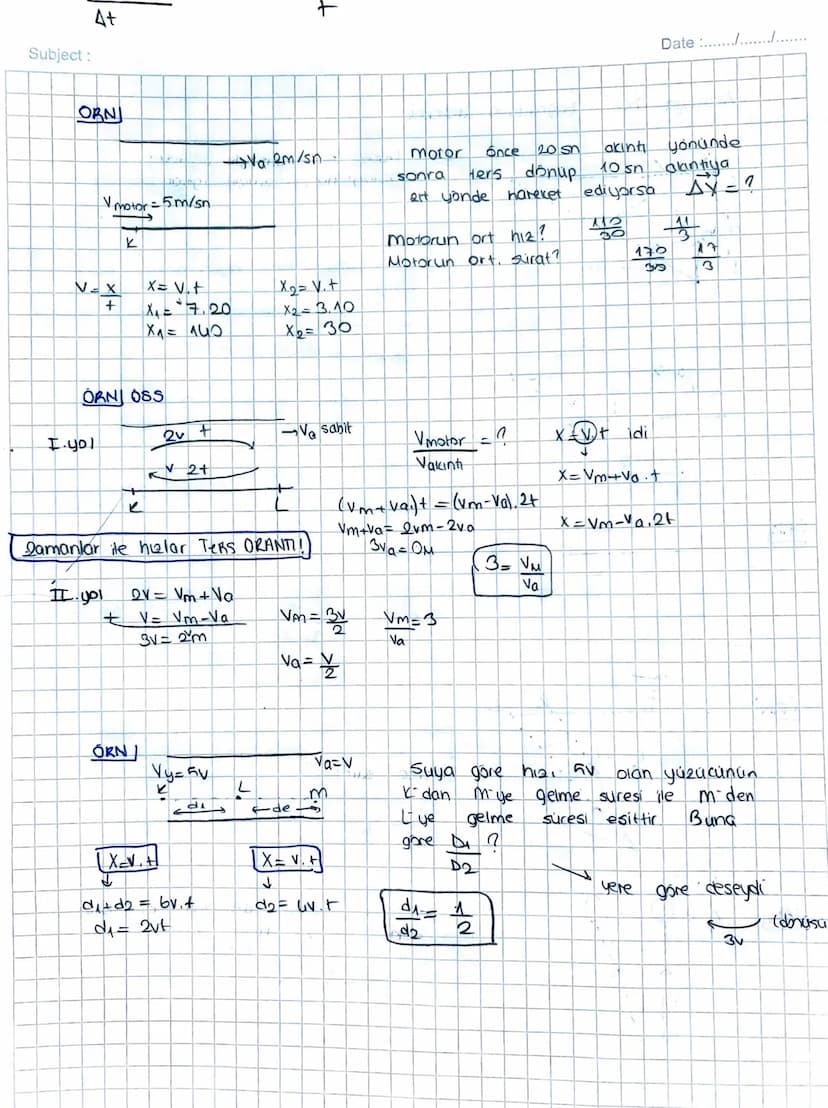 Δt
t
Subject :
Date :......./......./.......
ÖRN/
→Va 2m/sn
Vmotor = 5m/sn
K
motor önce 20 sn akıntı yönünde
sonra ters dönüp 10 sn akıntıya
ert yönde hareket ediyorsa ΔX = ?
Motorun ort hız? 110/30 11/3
Motorun ort. sürat? 170/30 17/3
V = x/t X = V.t X2 = V.t
X1 = 7.20 X2 = 3.10
X1 = 140 X2 = 30
ÖRN/ ÖSS
I. yol
2v t →Va sabit
v 2t
K L
Vmotor/Vakıntı = ?
X = V t idi
X = Vm+Va . t
X = Vm-Va . 2t
(Vm + Va)t = (Vm-Va).2t
Vm+Va = 2Vm - 2Va
3Va = Vm
3 = VM/Va
Zamanlar ile hızlar TERS ORANTI!
II. yol 2V = Vm+Va
+ V = Vm-Va
3V = 2Vm
Vm = 3V/2 Vm/Va = 3
Va = V/2
ÖRN/
Vy = 5V Va = V
K L M
d1 d2
Suya göre hızı 5V olan yüzücünün
K'dan M'ye gelme süresi ile M'den
L'ye gelme süresi eşittir Buna
göre D1/D2 ?
X = V.t X = V.t
d1+d2 = 6V.t d2 = 4V.t
d1 = 2Vt
d1/d2 = 1/2
yere göre deseydi
(dönüşü
3V